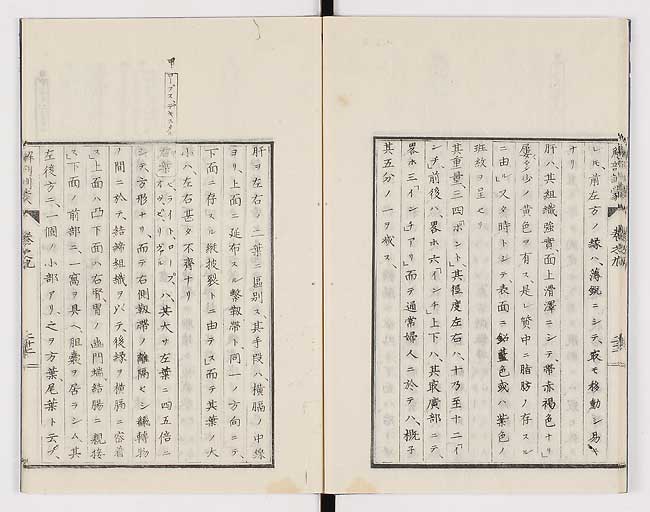 解剖訓蒙
巻之九
レル前左方ノ縁ハ、薄鋭ニシテ、最モ移動シ易キ
ナリ
肝ハ、其組織強實、面上滑澤ニシテ、帯赤褐色ナリ
屡多少ノ黄色ヲ有ス、是レ質中ニ脂肪ノ存スル
ニ由ル、又タ時トシテ表面ニ鉛藍色或ハ紫色ノ
班紋ヲ呈セリ
其重量、三四「ポント」、其徑度左右ハ、十乃至十二「イ
ンチ」前後ハ、畧ホ六「インチ」上下ハ、其最廣部ニテ、
畧ホ三「インチ」アリ、而テ通常婦人ニ於テハ、概子
其五分ノ一ヲ減ス、
甲
ロープスデキスタル
肝ヲ左右ノ二葉ニ區別ス、其手段ハ、横膈ノ中線
ヨリ、上面ニ延布スル繋靱帯ト、同一ノ方向ニテ、
下面ニ存スル縦披裂トニ由テス、而テ其葉ノ大
小ハ、左右甚タ不齊ナリ
右葉ライトロープ、ハ、其大サ左葉ニ四五倍ニ
シテ、方形ナリ、而テ右側靱帯ノ離隔セシ飜轉物
ノ間ニ於テ、結締組織ヲ以テ、後縁ヲ横膈ニ密着
ス、上面ハ凸、下面ハ右腎、胃ノ幽門端、結腸ニ親接
ス、下面ノ前部ニ、一窩ヲ具ヘ、胆嚢ヲ居ラシム、其
左後方ニ、一個ノ小部アリ、之ヲ方葉、尾葉ト云フ、
解剖訓蒙
巻之九
二十二